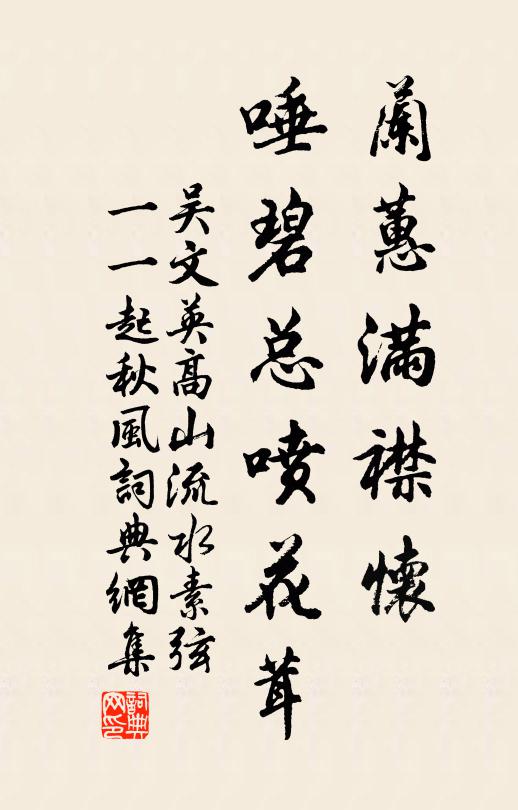 蘭蕙满襟懷
唾碧总噴花茸
吴文英高山流水素弦
一一起秋風詞典網集
詞典网印